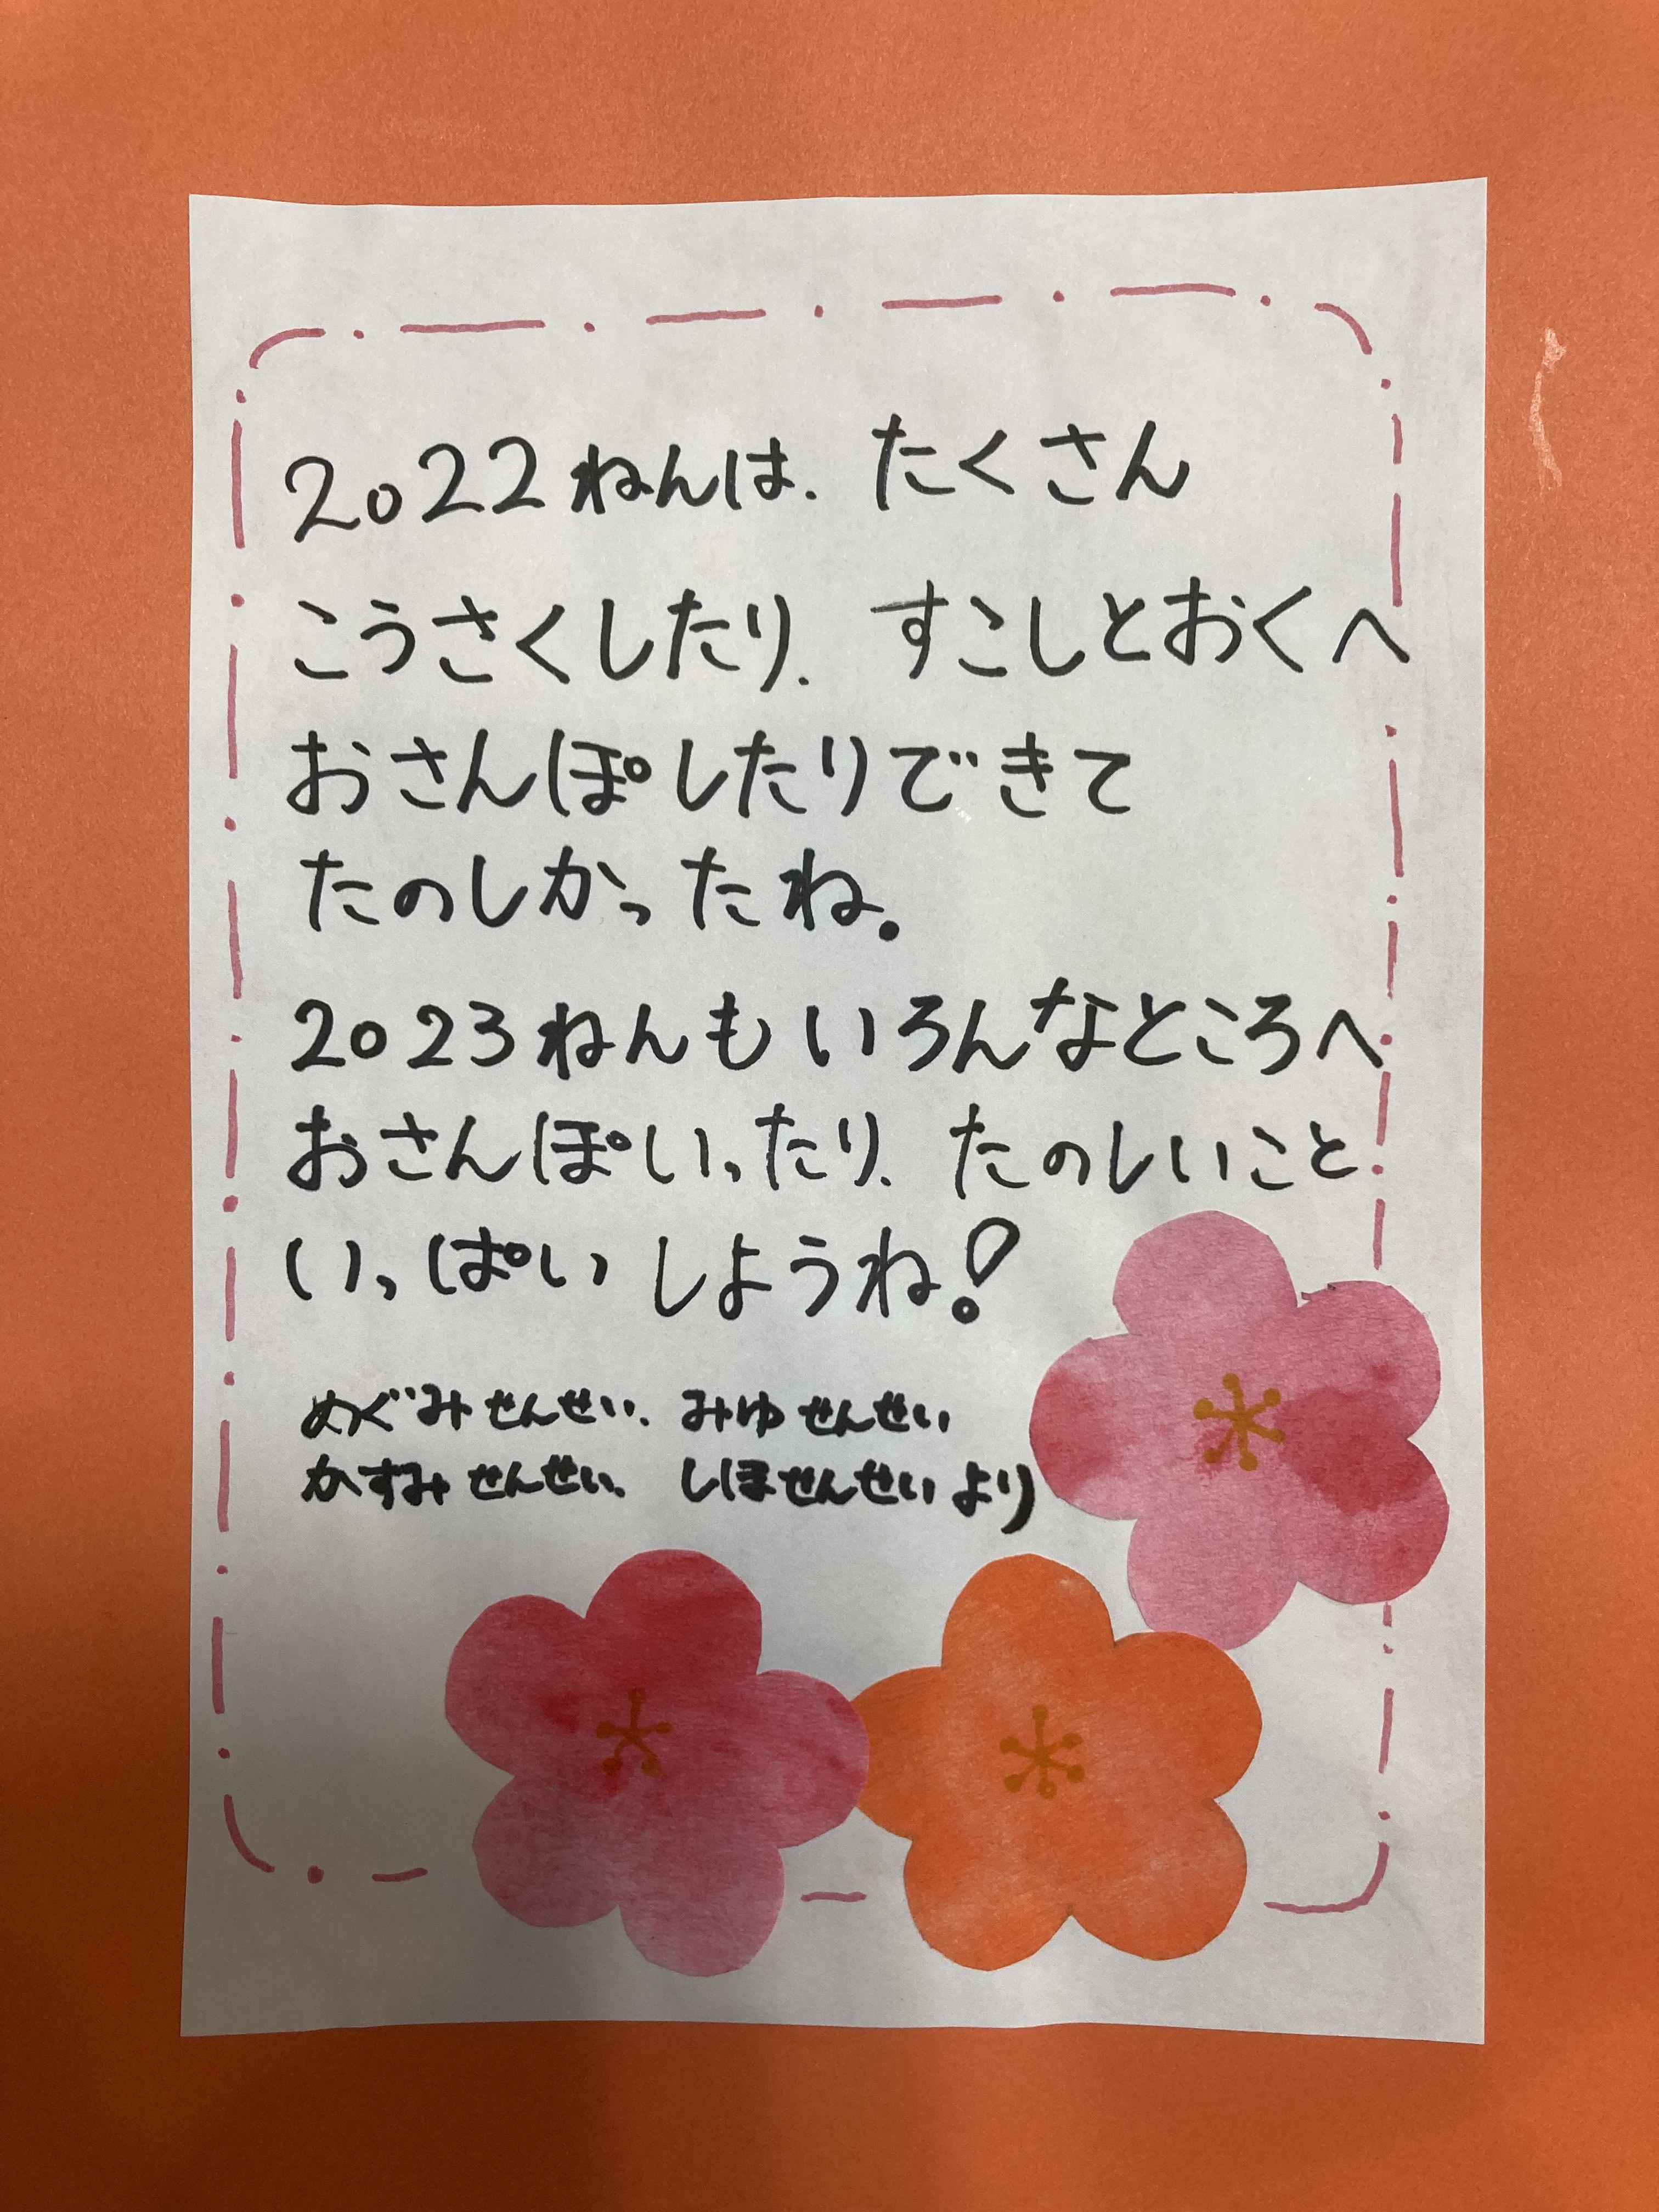 2022ねんは、たくさん
こうさくしたり、すこしとおくへ
おさんぽしたりできて
たのしかったね。
2023ねんもいろんなところへ
おさんぽいったり、たのしいこと
いっぱいしようね!
めぐみせんせい、みゆせんせい
かすみせんせい、しほせんせいより